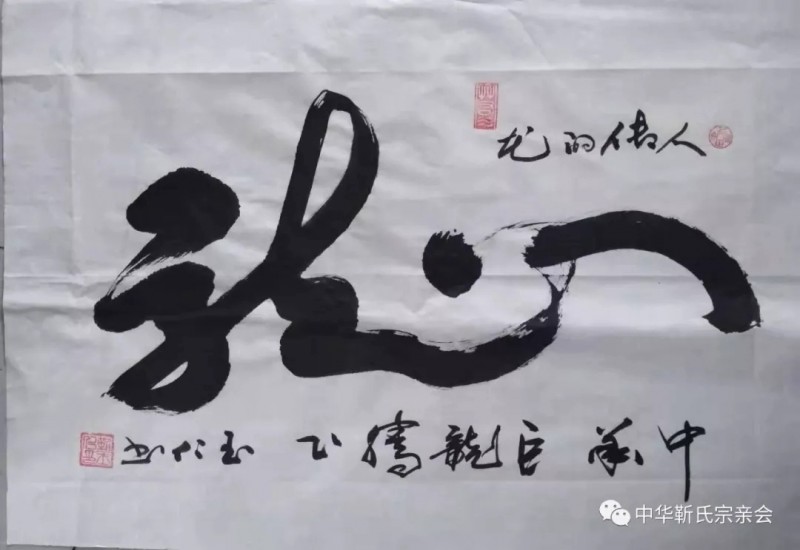 龍
龙的传人
中华巨龍腾飞 玉仁书
中华靳氏宗亲会